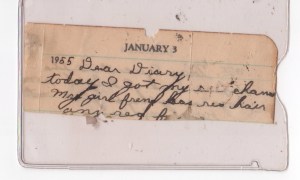 JANUARY 3
1955 Dear Diary,
today I got my
My girl frend has red hair
and red